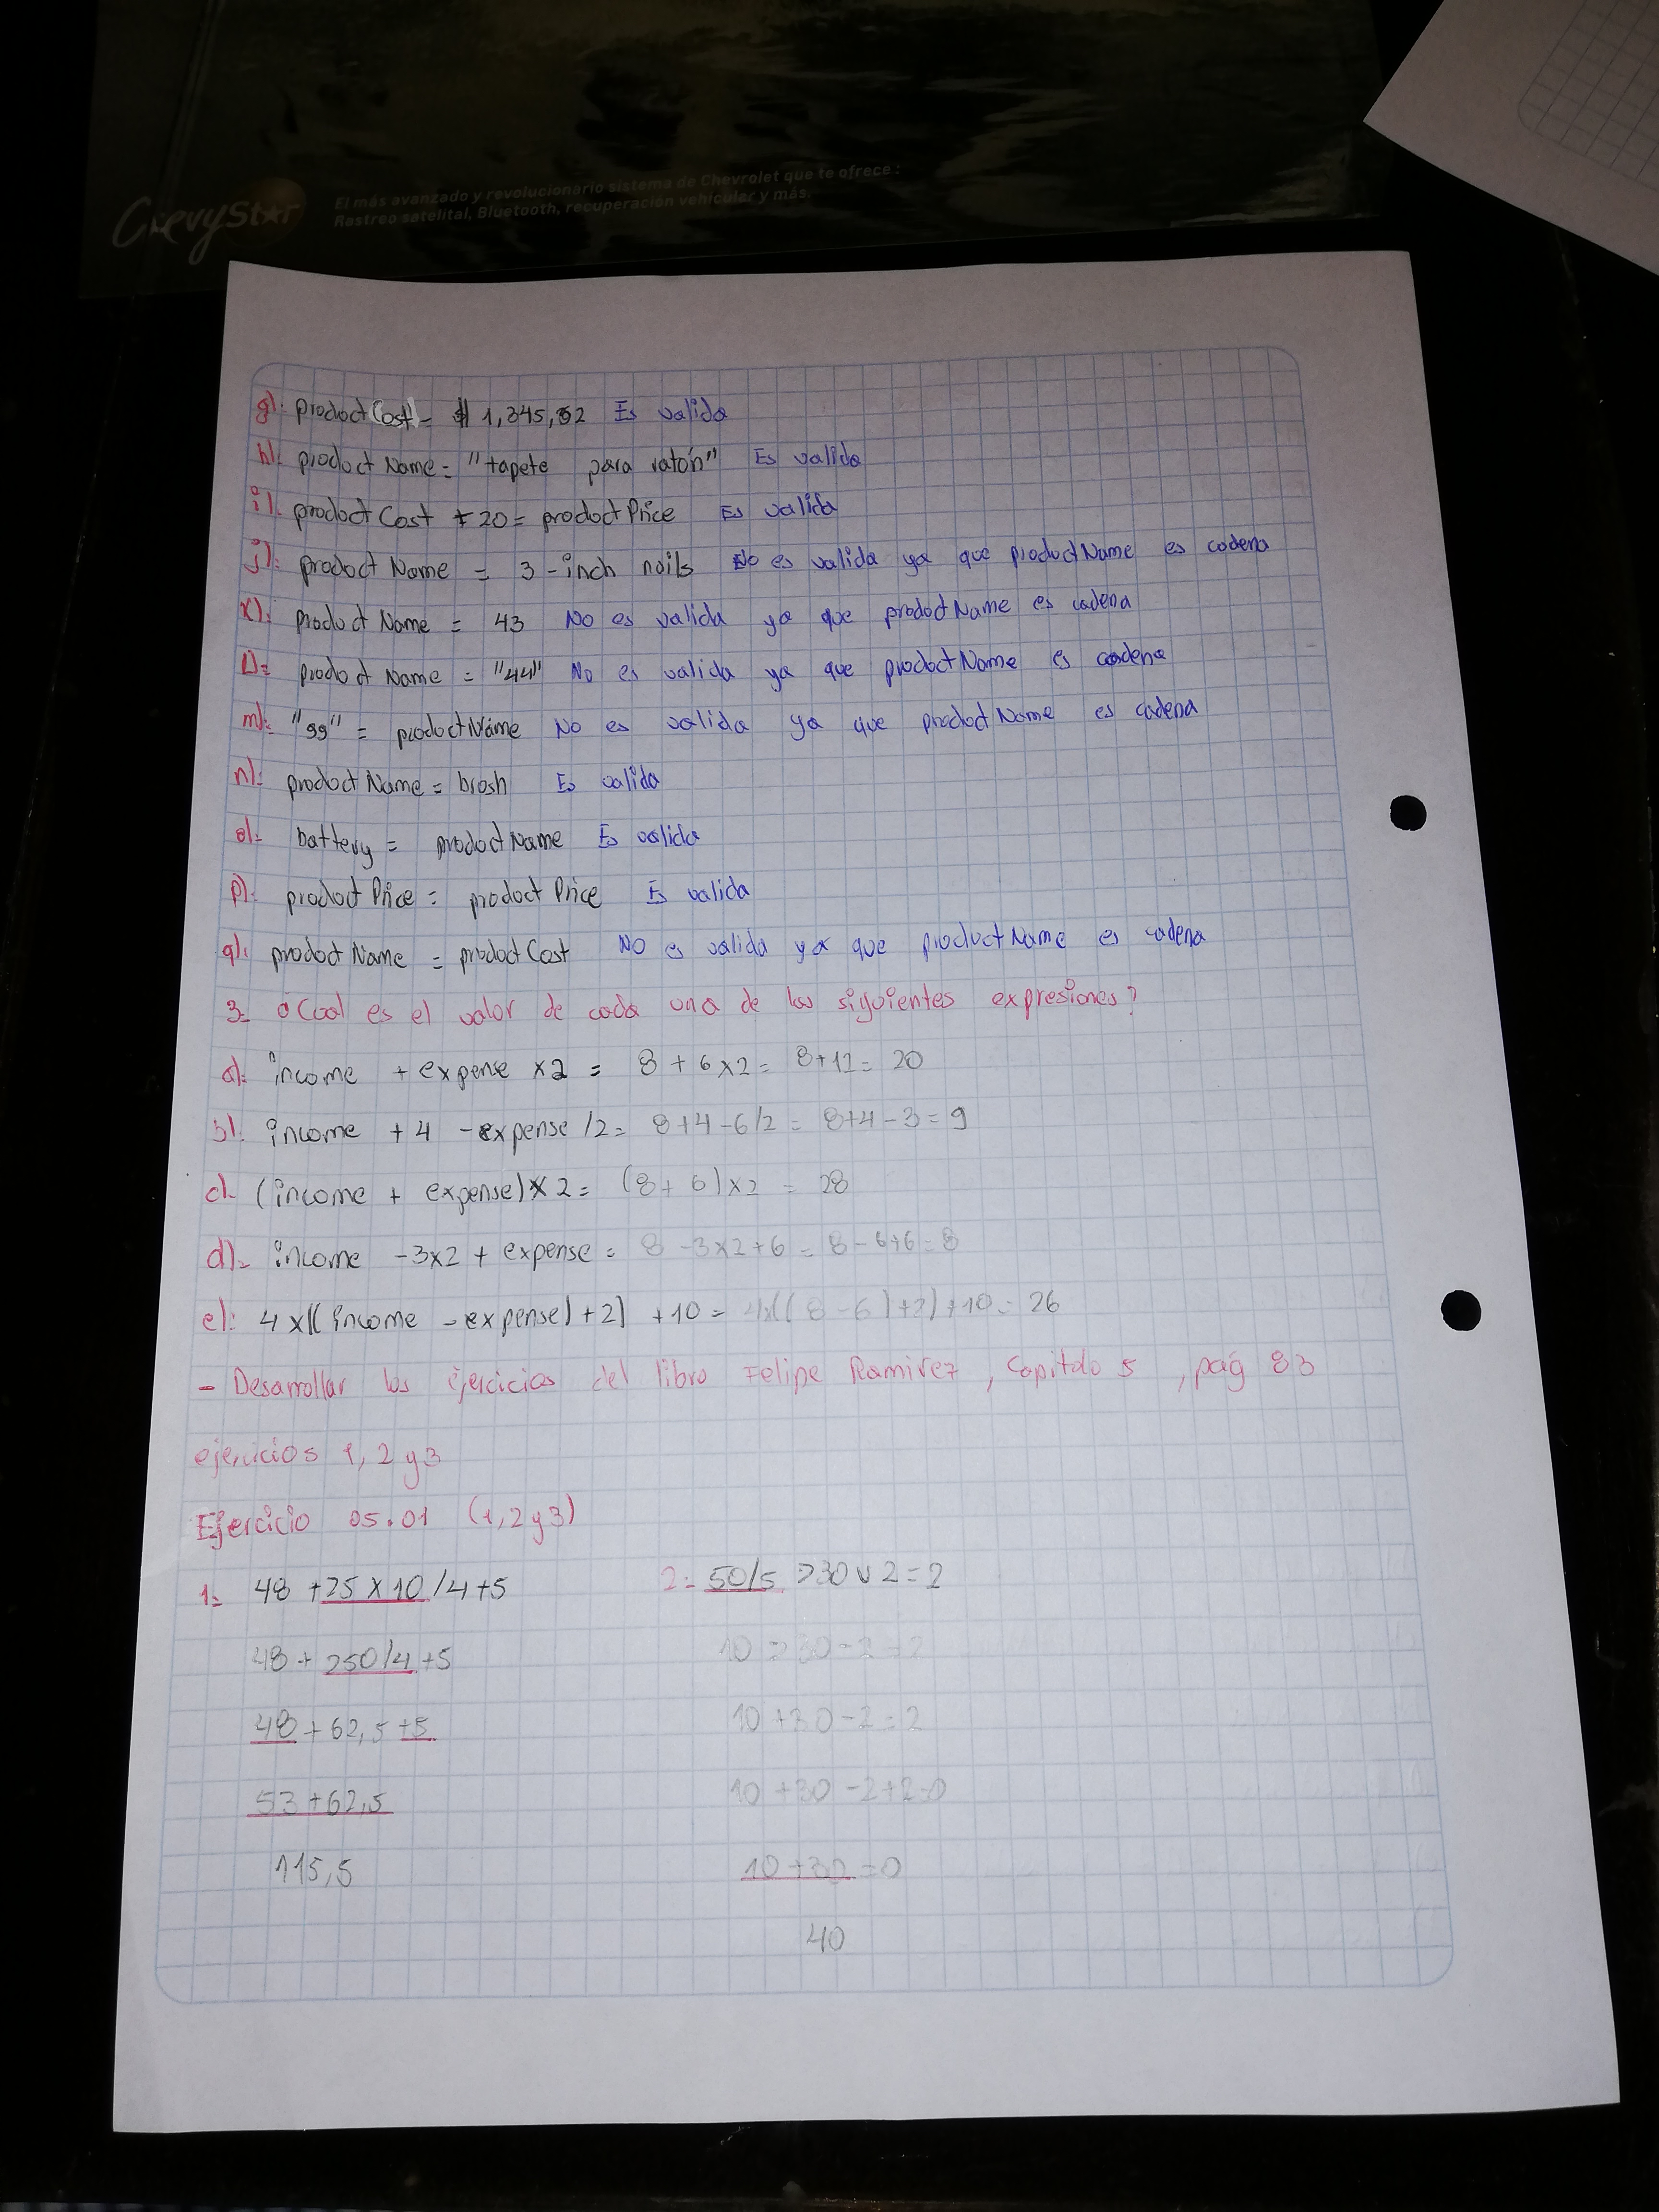 ChevyStar
El más avanzado y revolucionario sistema de Chevrolet que te ofrece:
Rastreo satelital, Bluetooth, recuperación vehicular y más.
g). productCost = $ 1,345,52 Es valida
h). productName = "tapete para ratón" Es valida
i). productCost + 20 = productPrice Es valida
j). productName = 3-inch nails No es valida ya que productName es cadena
k). productName = 43 No es valida ya que productName es cadena
l). productName = "44" No es valida ya que productName es cadena
m). "99" = productName No es valida ya que productName es cadena
n). productName = brush Es valida
o). battery = productName Es valida
p). productPrice = productPrice Es valida
q). productName = productCost No es valida ya que productName es cadena
3- ¿Cual es el valor de cada una de las siguientes expresiones?
a). income + expense x2 = 8 + 6x2 = 8+12 = 20
b). income + 4 - expense /2 = 8+4-6/2 = 8+4-3 = 9
c). (income + expense) x 2 = (8+6)x2 = 28
d). income -3x2 + expense = 8 -3x2+6 = 8-6+6=8
e). 4 x((income - expense)+2) +10 = 4x((8-6)+2)+10 = 26
- Desarrollar los ejercicios del libro Felipe Ramirez, Capitulo 5, pag 83
ejercicios 1, 2 y 3
Ejercicio 05.01 (1,2 y 3)
1- 48 +25 x 10 /4+5 2- 50/5 >30 v 2=2
48 + 250/4 +5 10 > 30 - 2 = 2
48 + 62,5 +5 10 +30 -2 = 2
53 +62,5 10 +30 -2+2=0
115,5 10 +30 =0
40